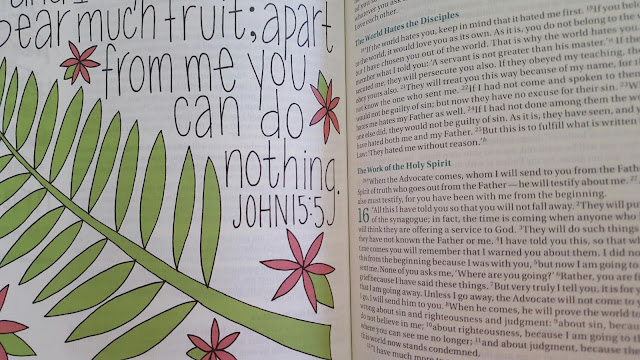 bear much fruit; apart
from me you
can do
nothing.
JOHN 15:5
whatever you ask
each other.
The World Hates the Disciples
18"If the world hates you, keep in mind that it hated me first. 19If you
to the world, it would love you as its own. As it is, you do not belong to the
but I have chosen you out of the world. That is why the world hates you.
what I told you: 'A servant is not greater than his master.' If they
me, they will persecute you also. If they obeyed my teaching, they
obey yours also. 21They will treat you this way because of my name, for
not know the one who sent me. 22If I had not come and spoken to them
would not be guilty of sin; but now they have no excuse for their sin.
hates me hates my Father as well. 24If I had not done among them the
one else did, they would not be guilty of sin. As it is, they have seen, and
have hated both me and my Father. 25But this is to fulfill what is written
Law: 'They hated me without reason.'
The Work of the Holy Spirit
26"When the Advocate comes, whom I will send to you from the
Spirit of truth who goes out from the Father — he will testify about me. 27
also must testify, for you have been with me from the beginning.
16 "All this I have told you so that you will not fall away. 2They will put
of the synagogue; in fact, the time is coming when anyone who
will think they are offering a service to God. 3They will do such things
they have not known the Father or me. 4I have told you this, so that
time comes you will remember that I warned you about them. I did
this from the beginning because I was with you, 5but now I am going
sent me. None of you asks me, 'Where are you going?' 6Rather, you are
grief because I have said these things. 7But very truly I tell you, it is for
that I am going away. Unless I go away, the Advocate will not come to
I go, I will send him to you. 8When he comes, he will prove the world to
wrong about sin and righteousness and judgment: 9about sin, because
do not believe in me; 10about righteousness, because I am going to
where you can see me no longer; 11and about judgment, because the
this world now stands condemned.
12"I have much more to